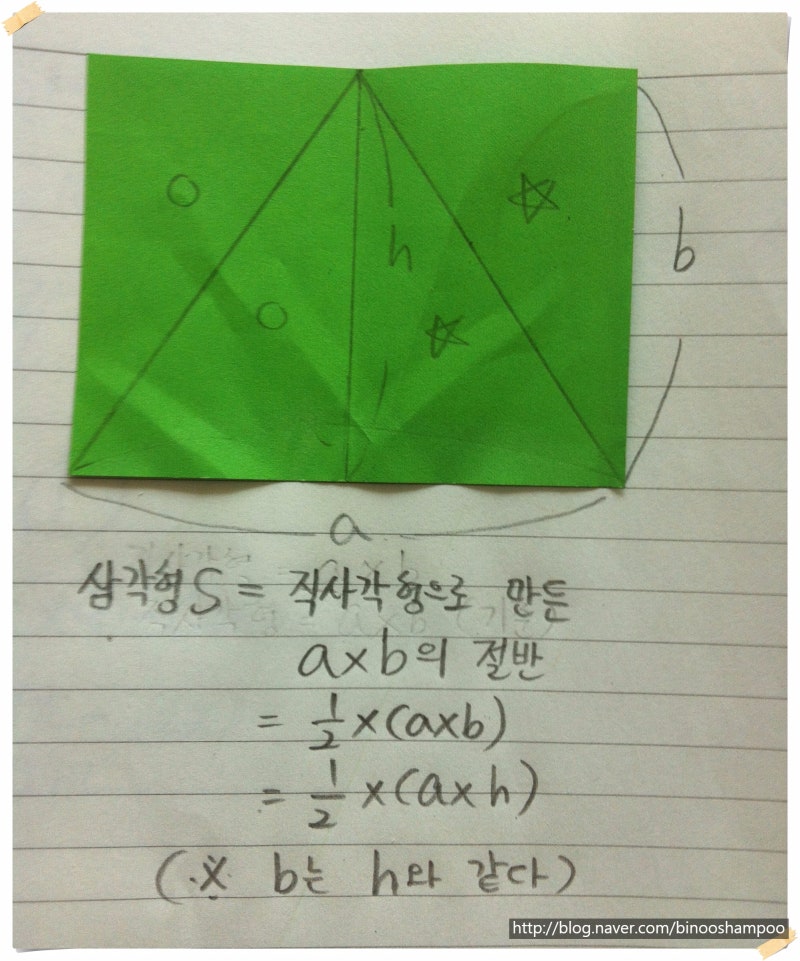 h
b
a
삼각형 S = 직사각형으로 만든
a×b의 절반
= 1/2 ×(a×b)
= 1/2 ×(a×h)
(※ b는 h와 같다)
http://blog.naver.com/binooshampoo